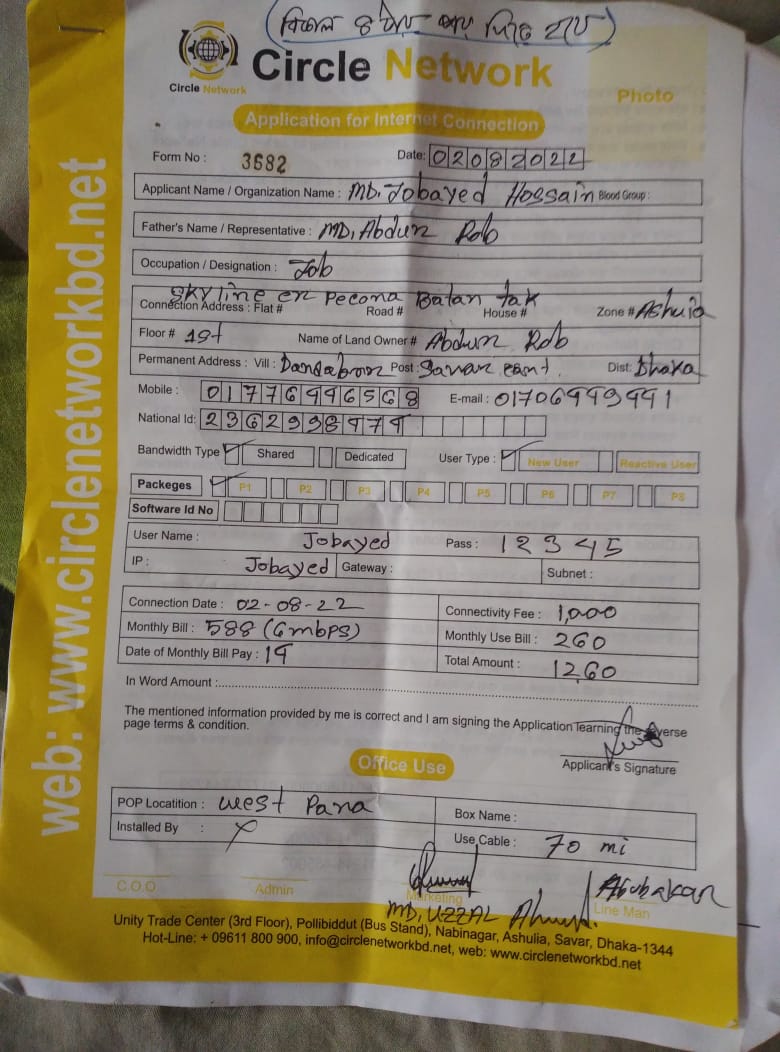 (বিকাল ৪ টার পর দিতে হবে)
Circle Network
Circle Network
Photo
Application for Internet Connection
Form No : 3682 Date: 02082022
Applicant Name / Organization Name : MD. Jobayed Hossain Blood Group :
Father's Name / Representative : MD, Abdur Rob
Occupation / Designation : Job
Skyline er Pecona Batan tak
Connection Address : Flat # Road # House # Zone # Ashuia
Floor # 1st Name of Land Owner # Abdur Rob
Permanent Address : Vill : Post : Savar cant. Dist: Dhaka
Mobile : 01776996568 E-mail : 01706999991
National Id: 2362998979
Bandwidth Type Shared Dedicated User Type : New User Reactive User
Packeges P1 P2 P3 P4 P5 P6 P7 P8
Software Id No
User Name : Jobayed Pass : 12345
IP : Jobayed Gateway : Subnet :
Connection Date : 02-08-22 Connectivity Fee : 1,000
Monthly Bill : 588 (6mbps) Monthly Use Bill : 260
Date of Monthly Bill Pay : 19 Total Amount : 1260
In Word Amount :
The mentioned information provided by me is correct and I am signing the Application learning the reverse
page terms & condition.
Applicant's Signature
Office Use
POP Locatition : West Para Box Name :
Installed By : Use Cable : 70 mi
C.O.O Admin Marketing Line Man
MD, UZZAL Ahmed. Abubakar
Unity Trade Center (3rd Floor), Pollibiddut (Bus Stand), Nabinagar, Ashulia, Savar, Dhaka-1344
Hot-Line: + 09611 800 900, info@circlenetworkbd.net, web: www.circlenetworkbd.net
web: www.circlenetworkbd.net